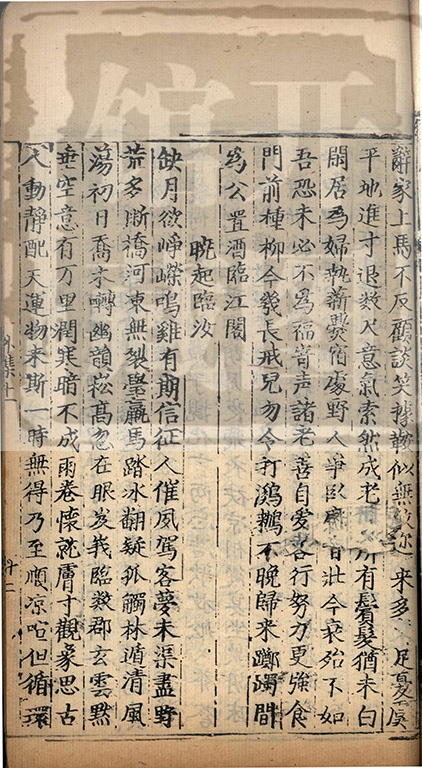 辭家上馬不反顧談笑據鞍似無敵邇來多足憂虞
平地進寸退數尺意氣索然成老有鬢髮猶未白
閑居爲婦執薪爨宿處野人爭臥席昔壯今衰殆不如
吾恐未必不爲福寄声諸老善自愛各行努力更強食
門前種柳今幾長戒兒勿令打鸂鶒不晚歸来躑躅間
爲公置酒臨江閣
曉起臨汝
缺月欲崢嶸鳴雞有期信征人催夙駕客夢未渠盡野
荒多斷橋河凍無裂璺羸馬踏冰翻疑狐觸林遁清風
蕩初日喬木囀幽韻崧高忽在眼岌峩臨數郡玄雲黙
垂空意有万里潤寒暗不成雨卷懷就膚寸觀象思古
人動靜配天運物来斯一時無得乃至順凉喧但循環
外集十一
廿二